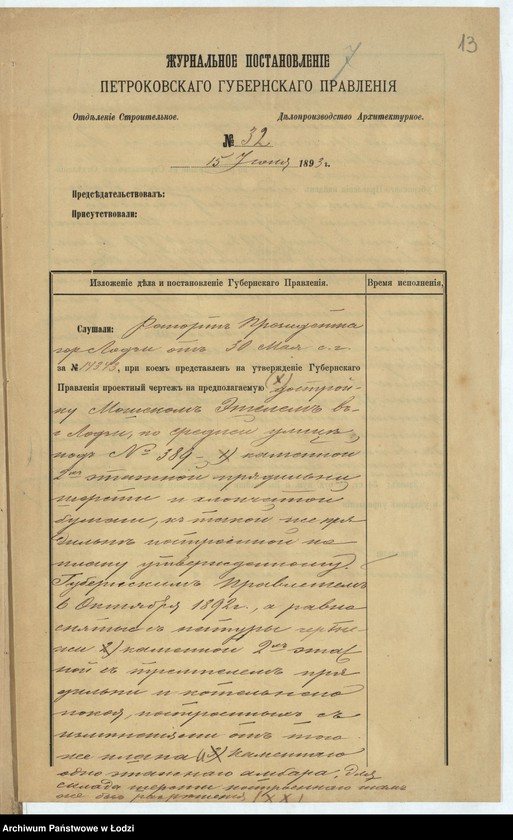 13
7
ЖУРНАЛЬНОЕ ПОСТАНОВЛЕНІЕ
ПЕТРОКОВСКАГО ГУБЕРНСКАГО ПРАВЛЕНІЯ
Отдѣленіе Строительное. Дѣлопроизводство Архитектурное.
№ 32
15 Іюня 1893 г.
Предсѣдательствовалъ:
Присутствовали:
Изложеніе дѣла и постановленіе Губернскаго Правленія. Время исполненія,
Слушали: Рапортъ Президента
гор. Лодзи отъ 30 Мая с. г.
за № , при коемъ представленъ на утвержденіе Губернскаго
Правленія проектный чертежъ на предполагаемую (х) достройку
Мошкомъ Эт въ
г. Лодзи, по средней улицѣ,
подъ № 389 х) каменной
2хъ этажной прядильни
шерсти и хлопчатой
бумаги, къ такой же прядильнѣ
построенной по
плану утвержденному
Губернскимъ Правленіемъ
6 Октября 1892 г., а равно
снятые съ натуры чертежи
х) каменной 2хъ этажной
съ прядильни
и котельнаго
покоя, построенныхъ съ
отъ того
же плана х) каменнаго
одноэтажнаго амбара, для
склада шерсти построеннаго тамъ
же безъ разрѣшенія (хх)
Archiwum Państwowe w Łodzi